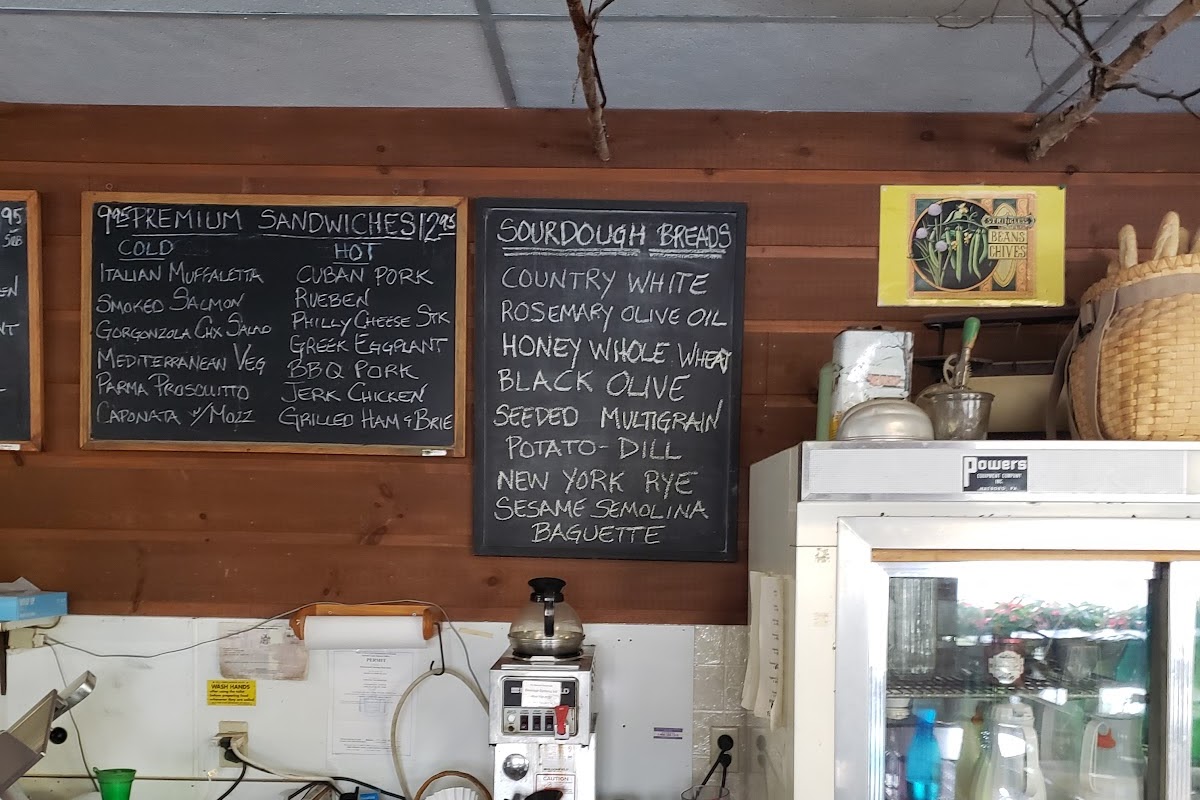 95
9.95 PREMIUM SANDWICHES 12.95
COLD
ITALIAN MUFFALETTA
SMOKED SALMON
GORGONZOLA CHX SALAD
MEDITERRANEAN VEG
PARMA PROSCUITTO
CAPONATA w/ MOZZ
HOT
CUBAN PORK
RUEBEN
PHILLY CHEESE STK
GREEK EGGPLANT
BBQ PORK
JERK CHICKEN
GRILLED HAM & BRIE
SOURDOUGH BREADS
COUNTRY WHITE
ROSEMARY OLIVE OIL
HONEY WHOLE WHEAT
BLACK OLIVE
SEEDED MULTIGRAIN
POTATO-DILL
NEW YORK RYE
SESAME SEMOLINA
BAGUETTE
STRINGLESS
BEANS
CHIVES
Powers
EQUIPMENT COMPANY
INC.
WASH HANDS
PERMIT
CAUTION